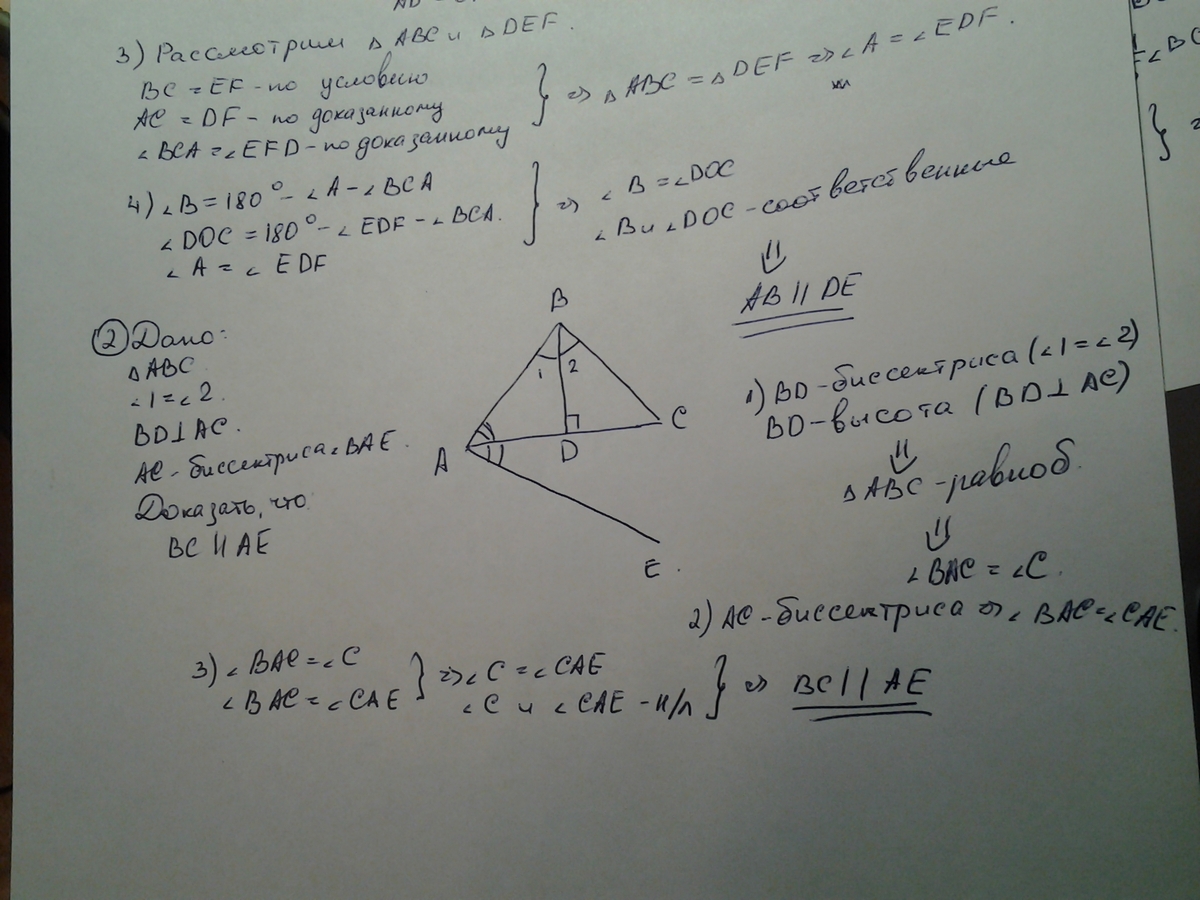 3) Рассмотрим △ABC и △DEF.
BC = EF - по условию
AC = DF - по доказанному
∠BCA = ∠EFD - по доказанному
} => △ABC = △DEF => ∠A = ∠EDF.
4) ∠B = 180° - ∠A - ∠BCA
∠DOC = 180° - ∠EDF - ∠BCA.
∠A = ∠EDF
} => ∠B = ∠DOC
∠B и ∠DOC - соответственные
⇓
AB || DE
② Дано:
△ABC
∠1 = ∠2.
BD⊥AC.
AC - биссектриса ∠BAE.
Доказать, что
BC || AE
B
1 2
A
D
C
E.
1) BD - биссектриса (∠1 = ∠2)
BD - высота (BD⊥AC)
⇓
△ABC - равноб.
⇓
∠BAC = ∠C.
2) AC - биссектриса => ∠BAC = ∠CAE.
3) ∠BAC = ∠C
∠BAC = ∠CAE
} => ∠C = ∠CAE
∠C и ∠CAE - н/л
} => BC || AE
∠BC